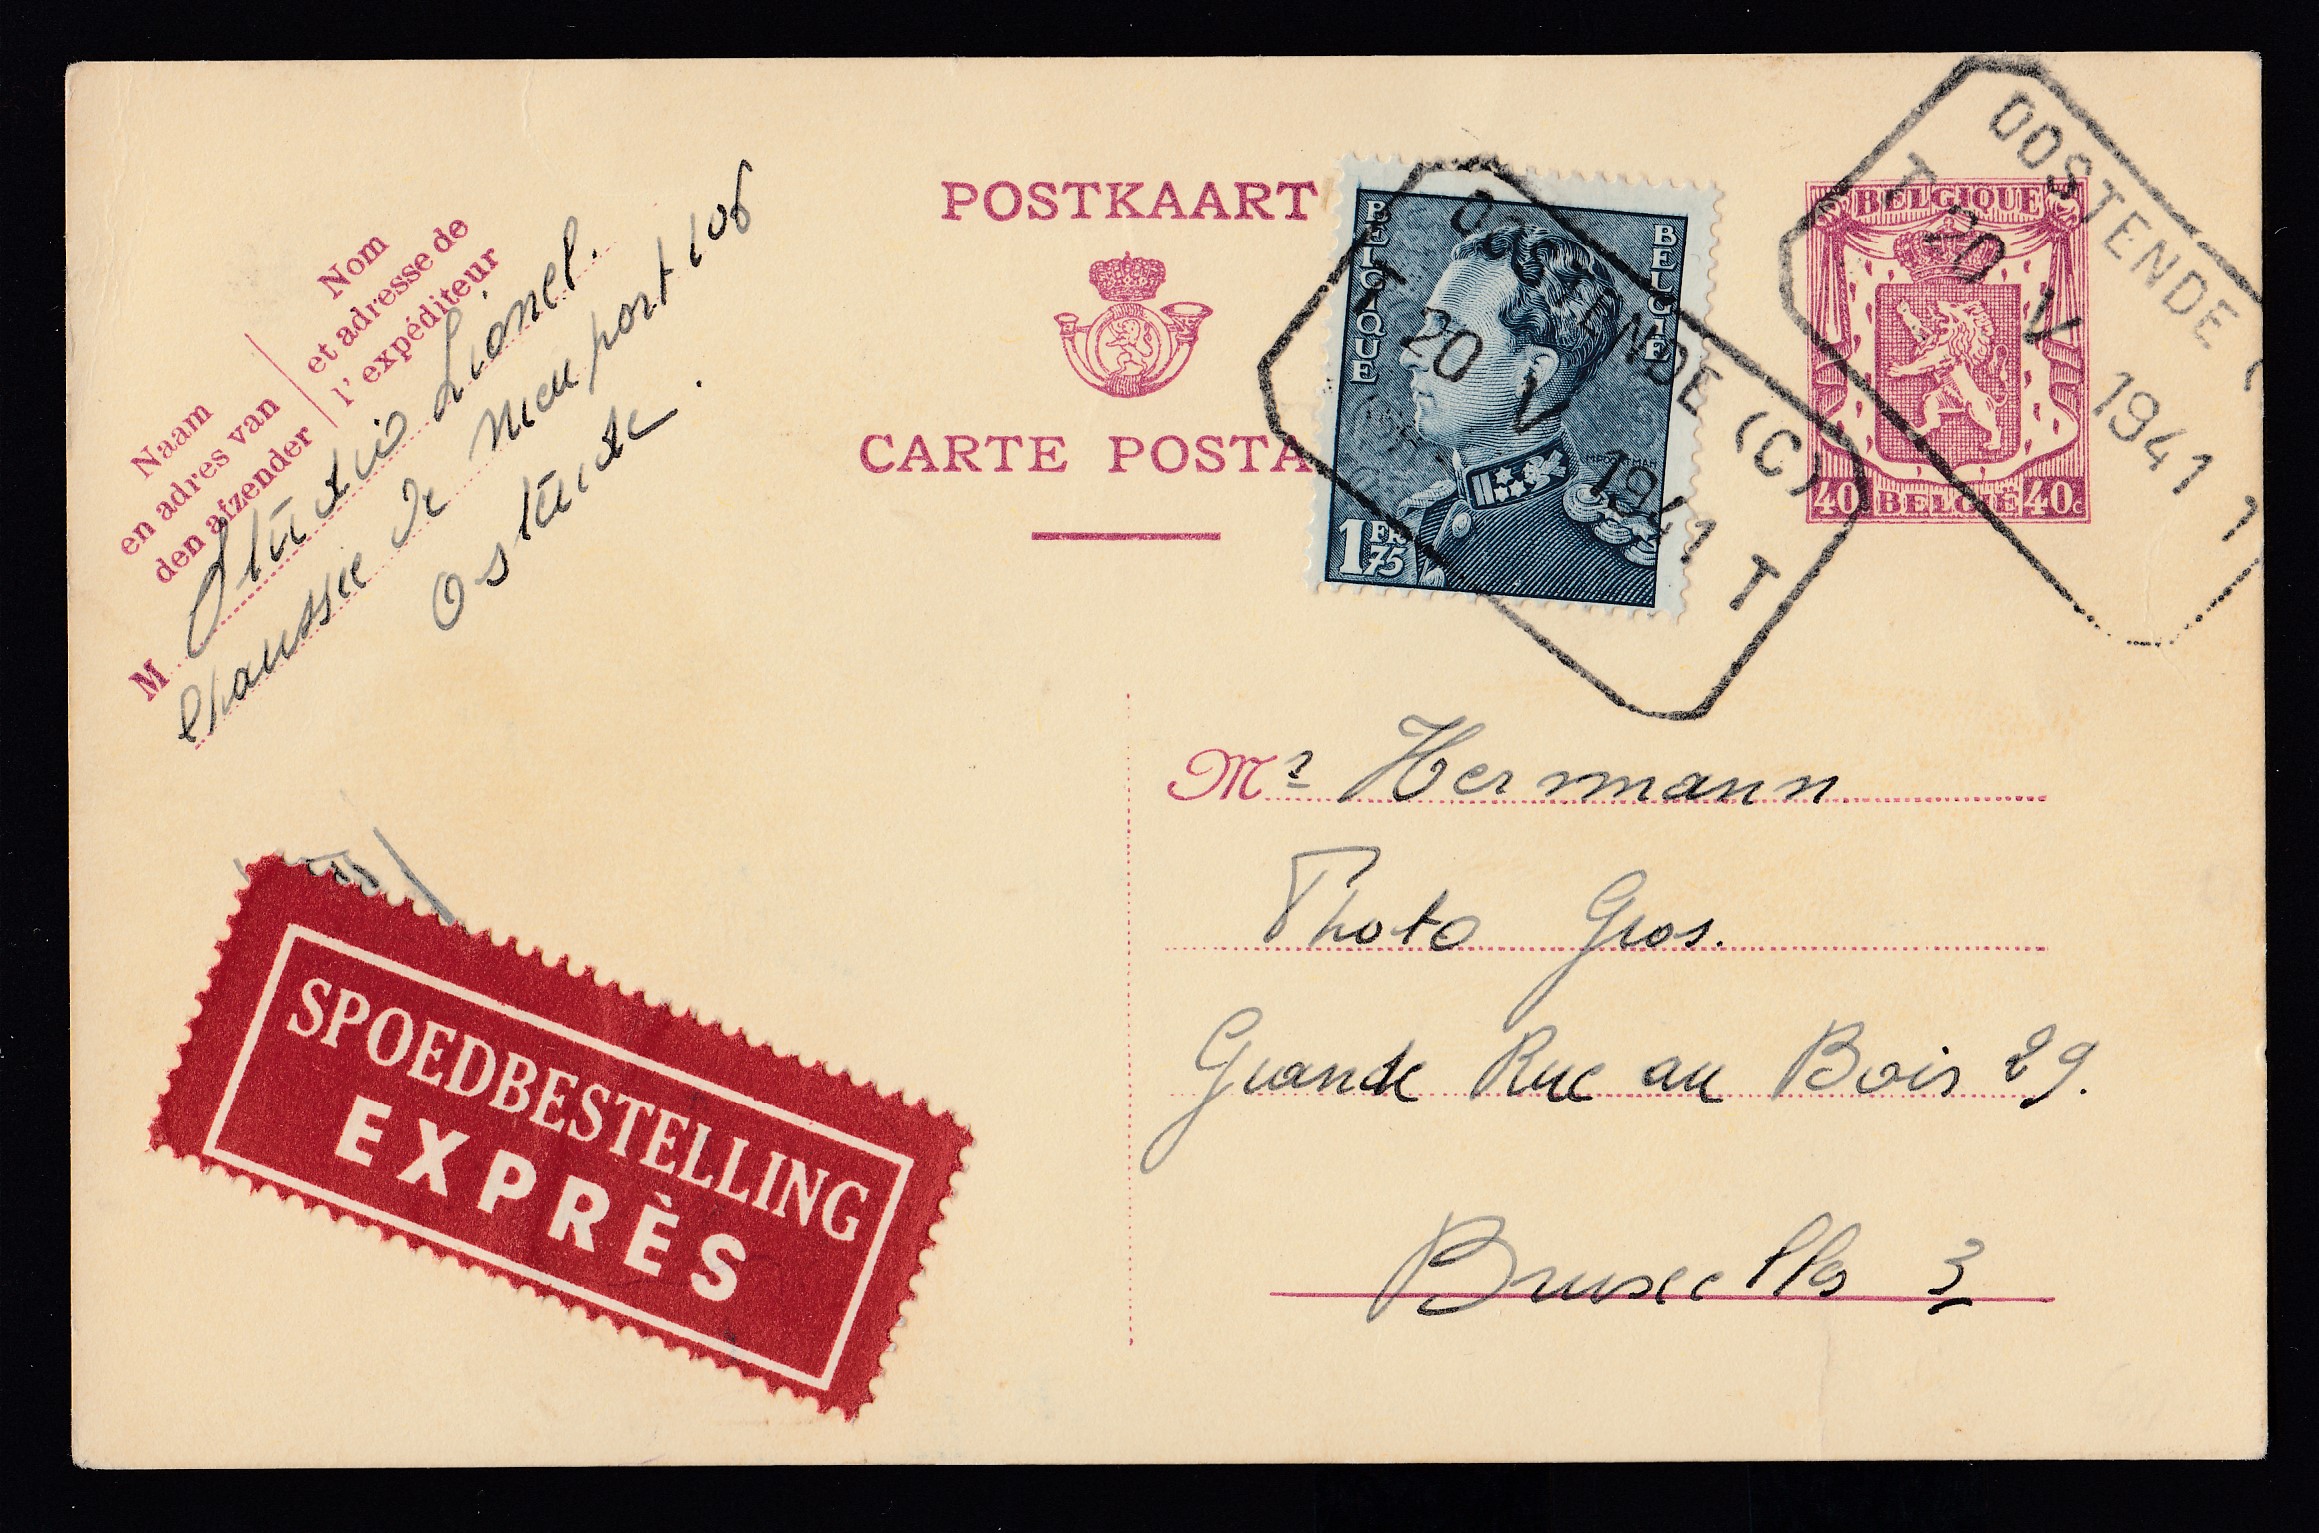 POSTKAART
CARTE POSTA
Nom
et adresse de
l' expéditeur
Naam
en adres van
den afzender
M Studio Lionel.
Chaussée de Nieuport 106
Ostende.
BELGIQUE
BELGIE
1 FR 75
OOSTENDE (C)
T 20 V 1941 T
BELGIQUE
40 BELGIË 40c
OOSTENDE (
T 20 V 1941 1
Mr Hermann
Photo Gros.
Grande Rue au Bois 29.
Bruxelles 3
SPOEDBESTELLING
EXPRÈS